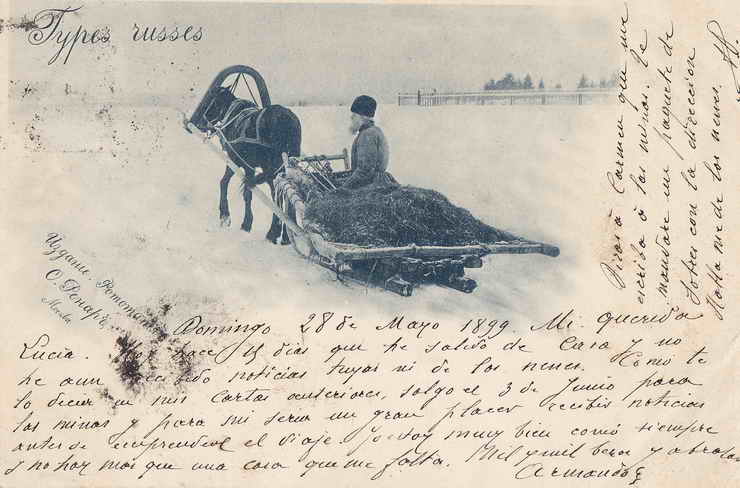 Types russes
Изданіе Фототипіи
О. Ренаръ,
Москва
Domingo 28 de Mayo 1899. Mi querida
Lucia. Hoy hace 15 dias que he salido de casa y no
he aun recibido noticias tuyas ni de los nenes. Como te
lo decia en mis cartas anteriores, salgo el 3 de Junio para
las minas y para mi seria un gran placer recibir noticias
antes de emprender el viaje. Yo estoy muy bien como siempre
y no hay mas que una cosa que me falta. Mil y mil besos y abrazos
Armando
Diras à Carmen que me
escriba à las minas. Te
mandare un paquete de
sobres con la direccion
Habla me de los nenes.